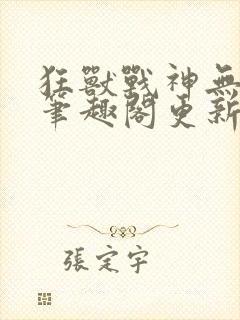 狂獸戰神無
筆趣閣更新
張定宇